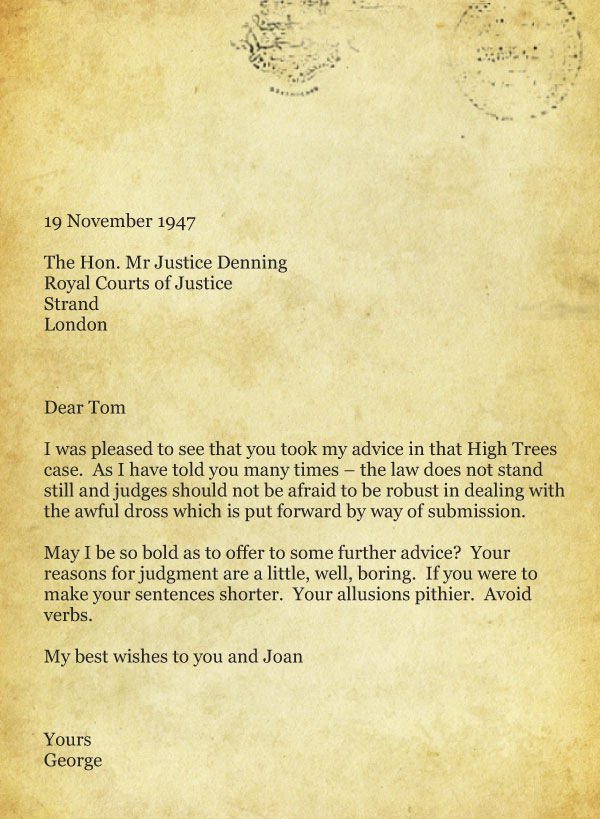 19 November 1947
The Hon. Mr Justice Denning
Royal Courts of Justice
Strand
London
Dear Tom
I was pleased to see that you took my advice in that High Trees
case.  As I have told you many times – the law does not stand
still and judges should not be afraid to be robust in dealing with
the awful dross which is put forward by way of submission.
May I be so bold as to offer to some further advice?  Your
reasons for judgment are a little, well, boring.  If you were to
make your sentences shorter.  Your allusions pithier.  Avoid
verbs.
My best wishes to you and Joan
Yours
George